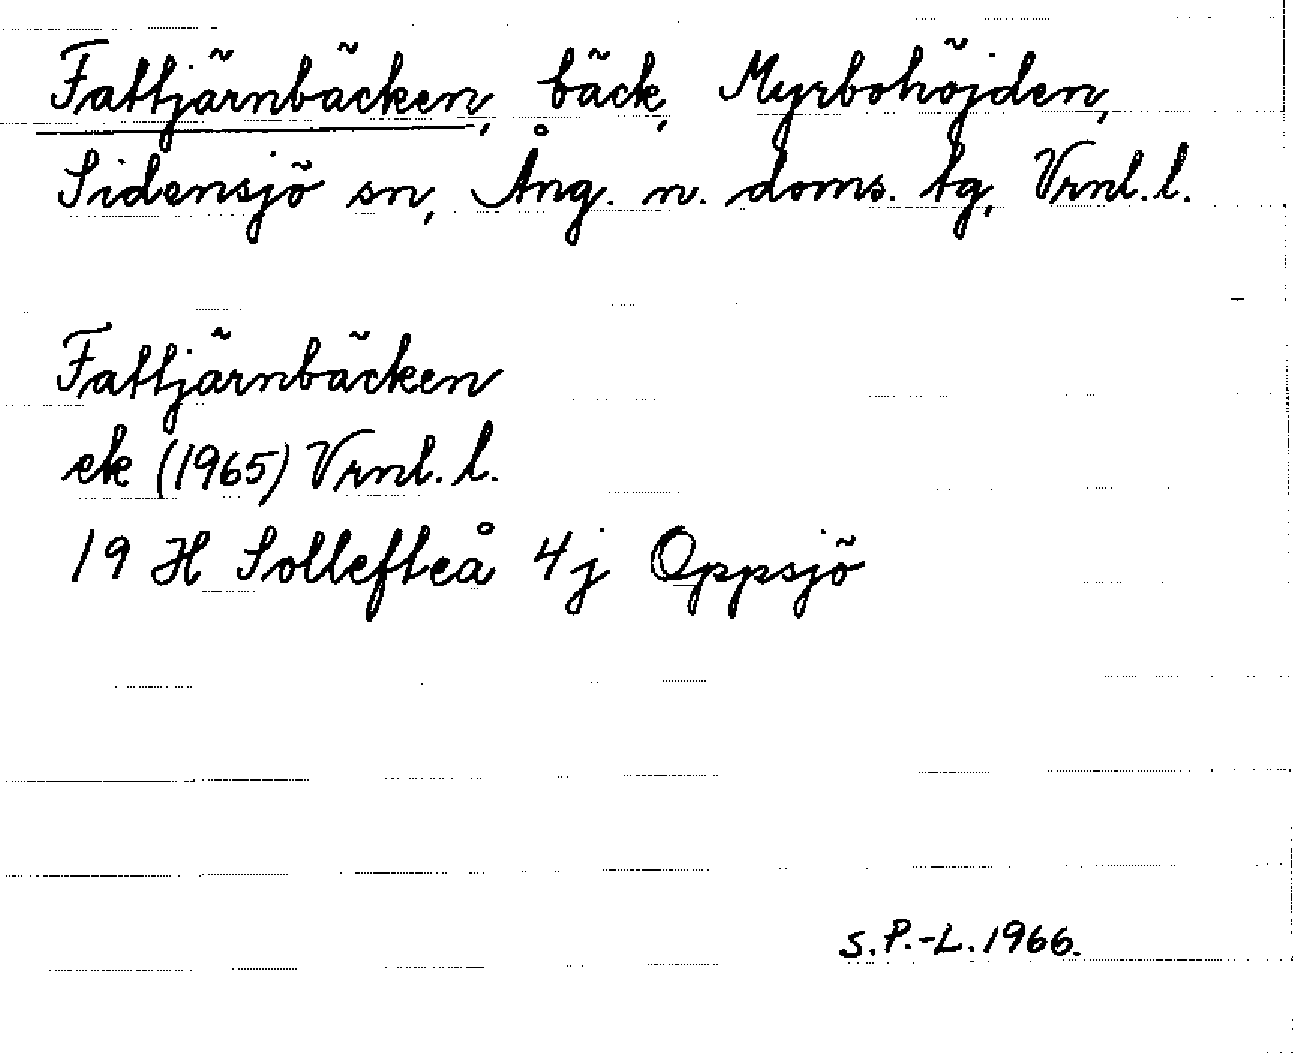 Fattjärnbäcken, bäck, Myrbohöjden,
Sidensjö sn, Ång. n. doms. tg, Vrnl. l.
Fattjärnbäcken
ek (1965) Vrnl. l.
19 H Sollefteå 4j Oppsjö
S.P.-L. 1966.